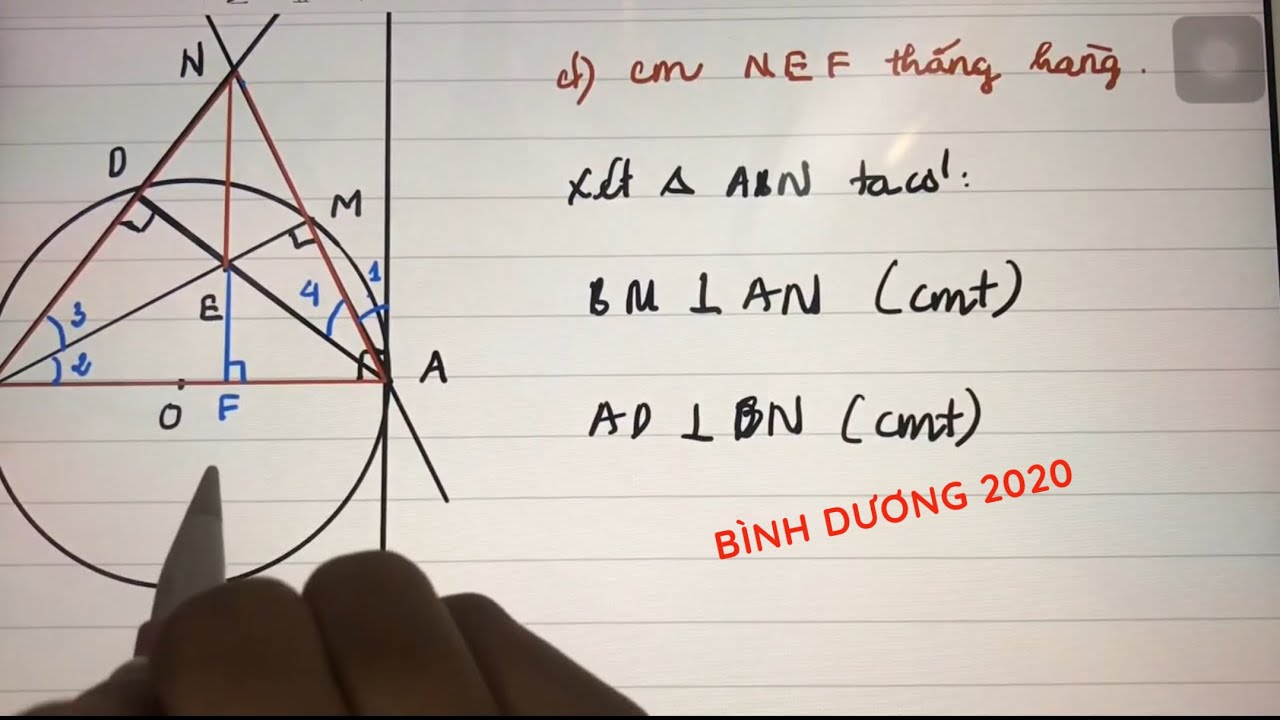 N
d) cm NEF thẳng hàng.
D
M
xét Δ ABN ta có:
1
4
E
3
2
BM ⊥ AN (cmt)
A
O
F
AD ⊥ BN (cmt)
BÌNH DƯƠNG 2020